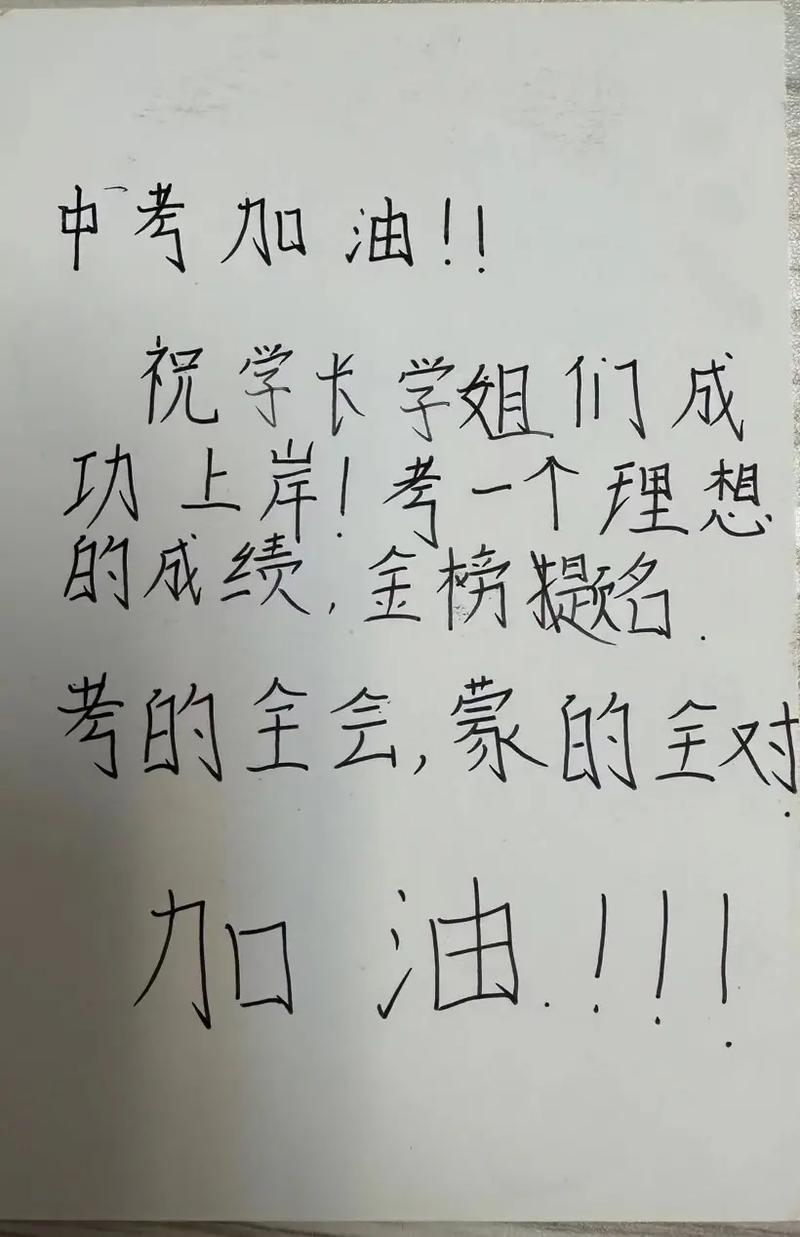 中考加油!!
祝学长学姐们成
功上岸!考一个理想
的成绩,金榜题名.
考的全会,蒙的全对.
加油.!!!